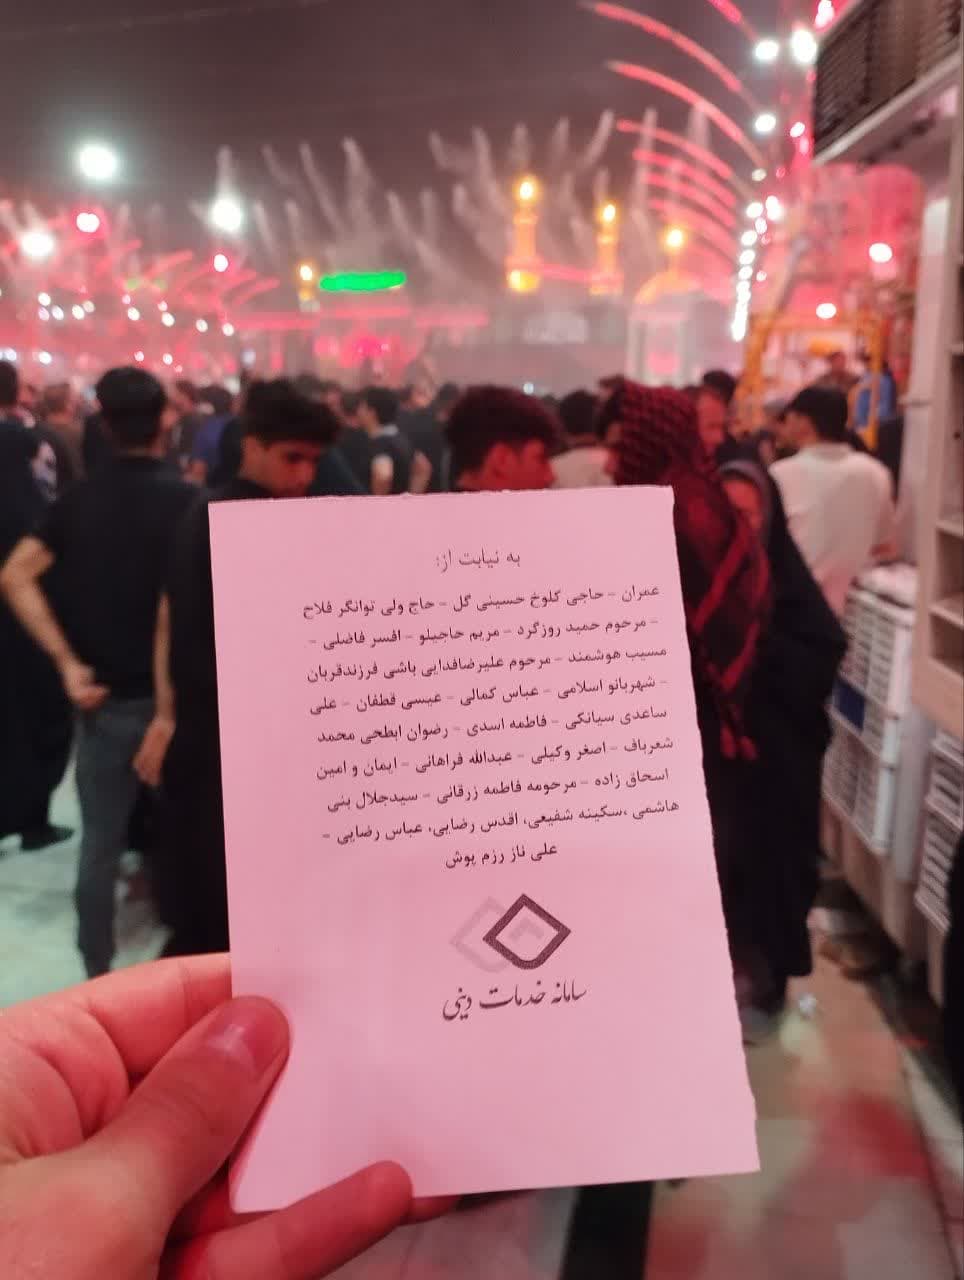 به نیابت از:
عمران - حاجی کلوخ حسینی گل - حاج ولی توانگر فلاح
- مرحوم حمید روزگرد - مریم حاجیلو - افسر فاضلی -
مسیب هوشمند - مرحوم علیرضافدایی باشی فرزندقربان
- شهربانو اسلامی - عباس کمالی - عیسی قطفان - علی
ساعدی سیانکی - فاطمه اسدی - رضوان ابطحی محمد
شعرباف - اصغر وکیلی - عبدالله فراهانی - ایمان و امین
اسحاق زاده - مرحومه فاطمه زرقانی - سیدجلال بنی
هاشمی ،سکینه شفیعی، اقدس رضایی، عباس رضایی -
علی ناز رزم پوش
سامانه خدمات دینی